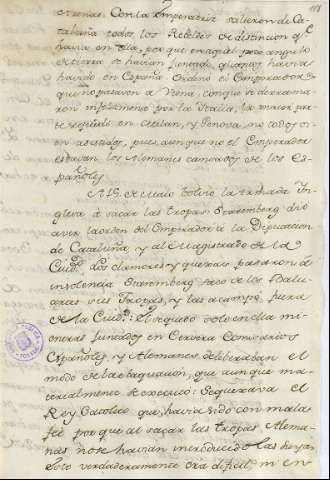 118
Con la Emperatriz salieron de Ca-
taluña todos los Rebeldes de distincion q.e
havia en ella, por que en aquel poco angulo
de tierra se havian juntado quantos havian
havido en España. Ordenó el Emperador
que no pasasen a Viena, conque se derrama-
ron por la Italia, la mayor par-
te se quedó en Milan, y Genova, no todos
asistidos, pues aunque no el Emperador
estavan los Alemanes cansados de los Es-
pañoles
A 15. de Maio bolvió la Armada In-
glesa á sacar las tropas: Staremberg dió
aver la orden del Emperador á la Diputacion
de Cataluña, y al Magistrado de la
Ciud.d Los clamores y quexas pasaron á
insolencia: Staremberg sacó de los Balu-
artes sus Tropas, y las acampó fuera
de la Ciud.d: Él se quedó solo en ella mi-
entras juntados en Cervera Comisarios
Españoles, y Alemanes deliberaban el
modo de la evaquacion, que aunque ma-
terialmente se executó: Se quexava el
Rey Catolico que havia sido con mala
fee por que al sacar las tropas Alema-
nas no se havian introducido las suyas
Esto verdaderamente era dificil, ni en